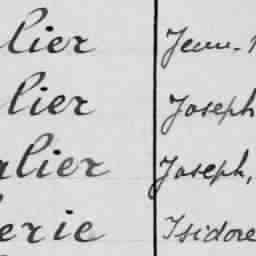 lier Jean-
lier Joseph
alier Joseph,
erie Isidore